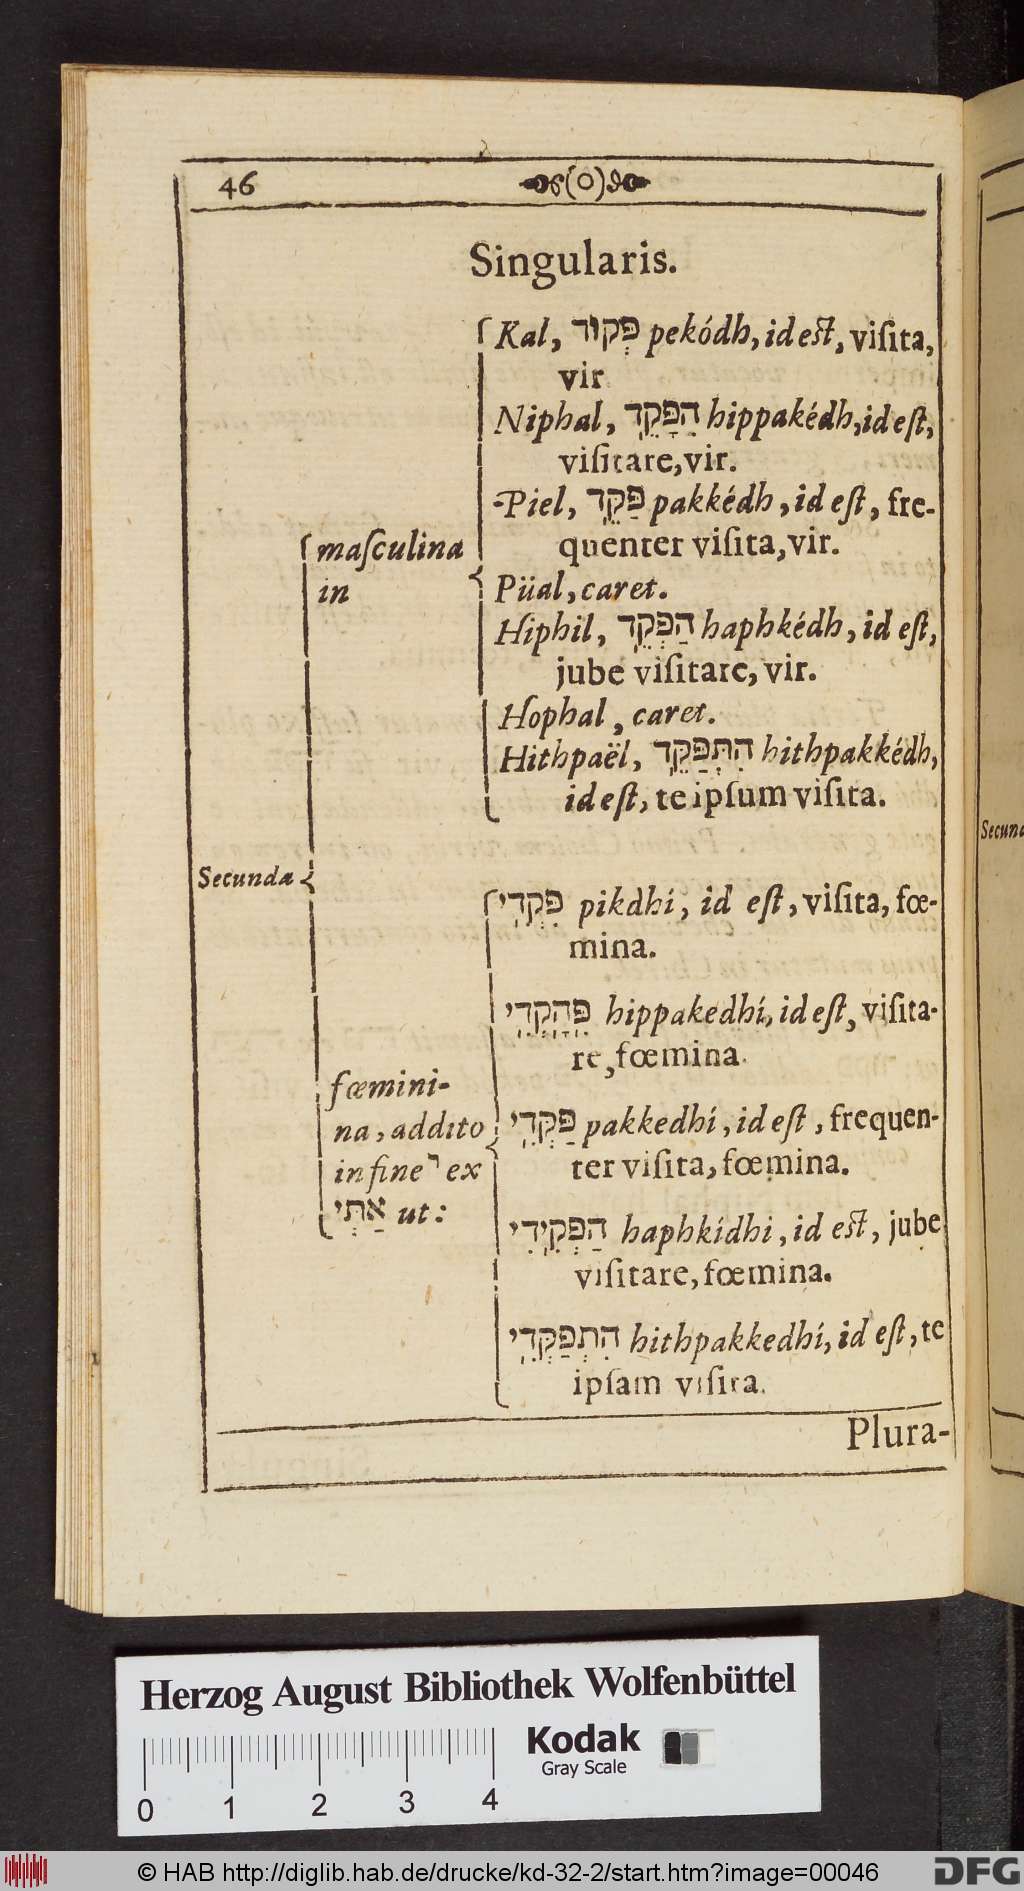 46
Singularis.
Kal, פְּקוֹר pekódh, id est, visita,
vir
Niphal, הִפָּקֵד hippakédh, id est,
visitare, vir.
Piel, פַּקֵּד pakkédh, id est, fre-
quenter visita, vir.
Püal, caret.
Hiphil, הַפְקֵד haphkédh, id est,
jube visitare, vir.
Hophal, caret.
Hithpaël, הִתְפַּקֵּד hithpakkédh,
id est, te ipsum visita.
masculina
in
Secunda
fœmini-
na, addito
in fine י ex
אַתְּי ut:
פִּקְדִי pikdhí, id est, visita, fœ-
mina.
hippakedhí, id est, visita-
re, fœmina.
פַּקְּדִי pakkedhí, id est, frequen-
ter visita, fœmina.
הַפְקִידִי haphkídhi, id est, jube
visitare, fœmina.
הִתְפַּקְּדִי hithpakkedhí, id est, te
ipsam visita.
Plura-
Secund
Herzog August Bibliothek Wolfenbüttel
Kodak
Gray Scale
0 1 2 3 4
© HAB http://diglib.hab.de/drucke/kd-32-2/start.htm?image=00046
DFG